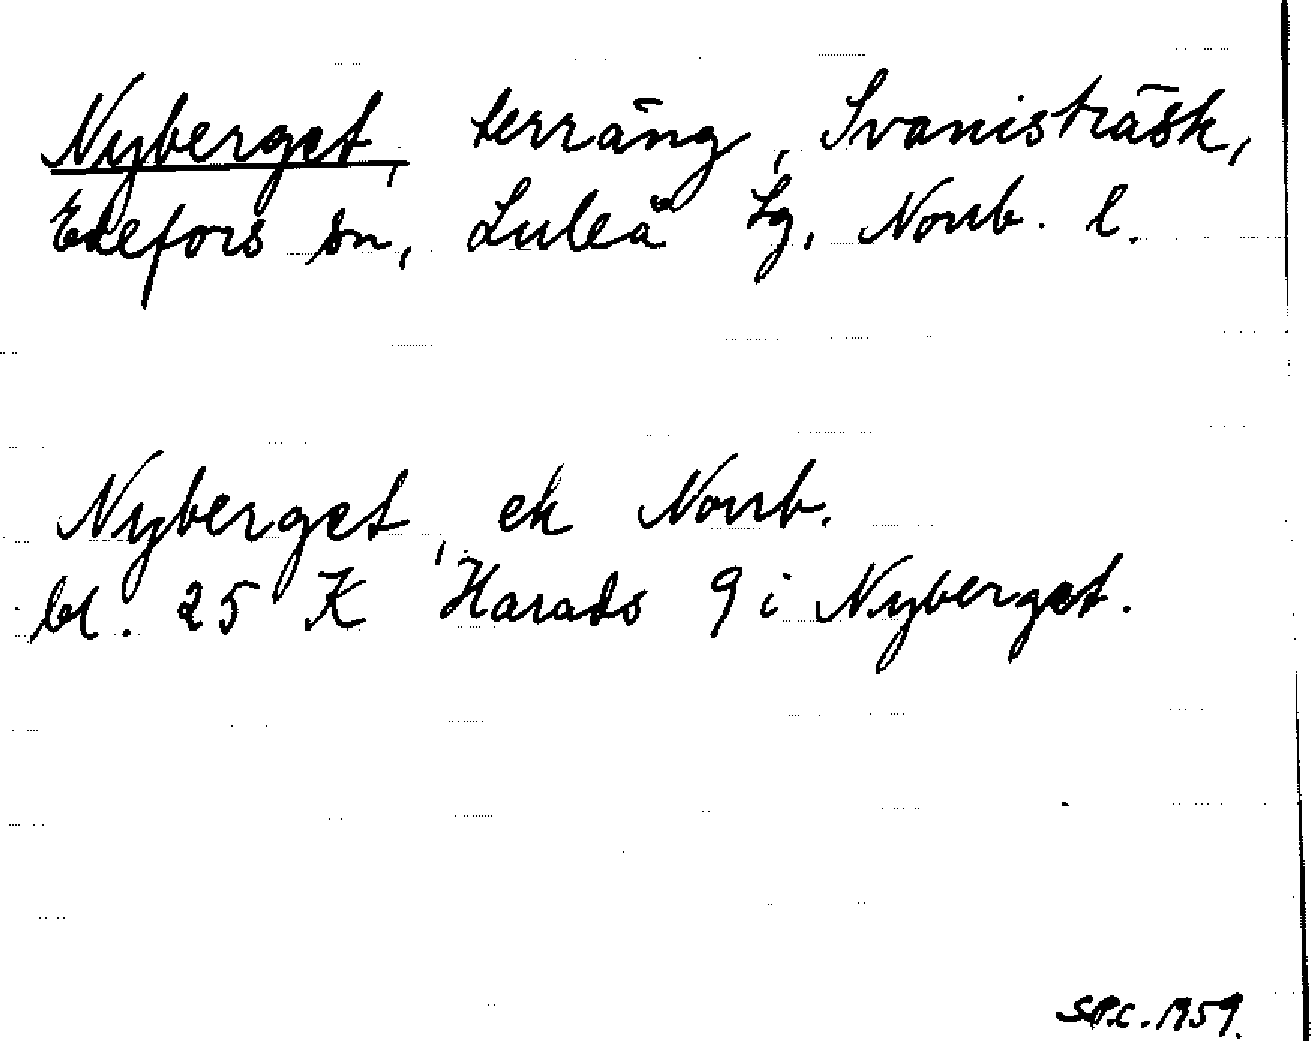 Nyberget, terräng, Svanisträsk,
Edefors sn, Luleå tg, Norrb. l.
Nyberget, ek Norrb.
bl. 25 K Harads 9 i Nyberget.
S.P.C. 1959.